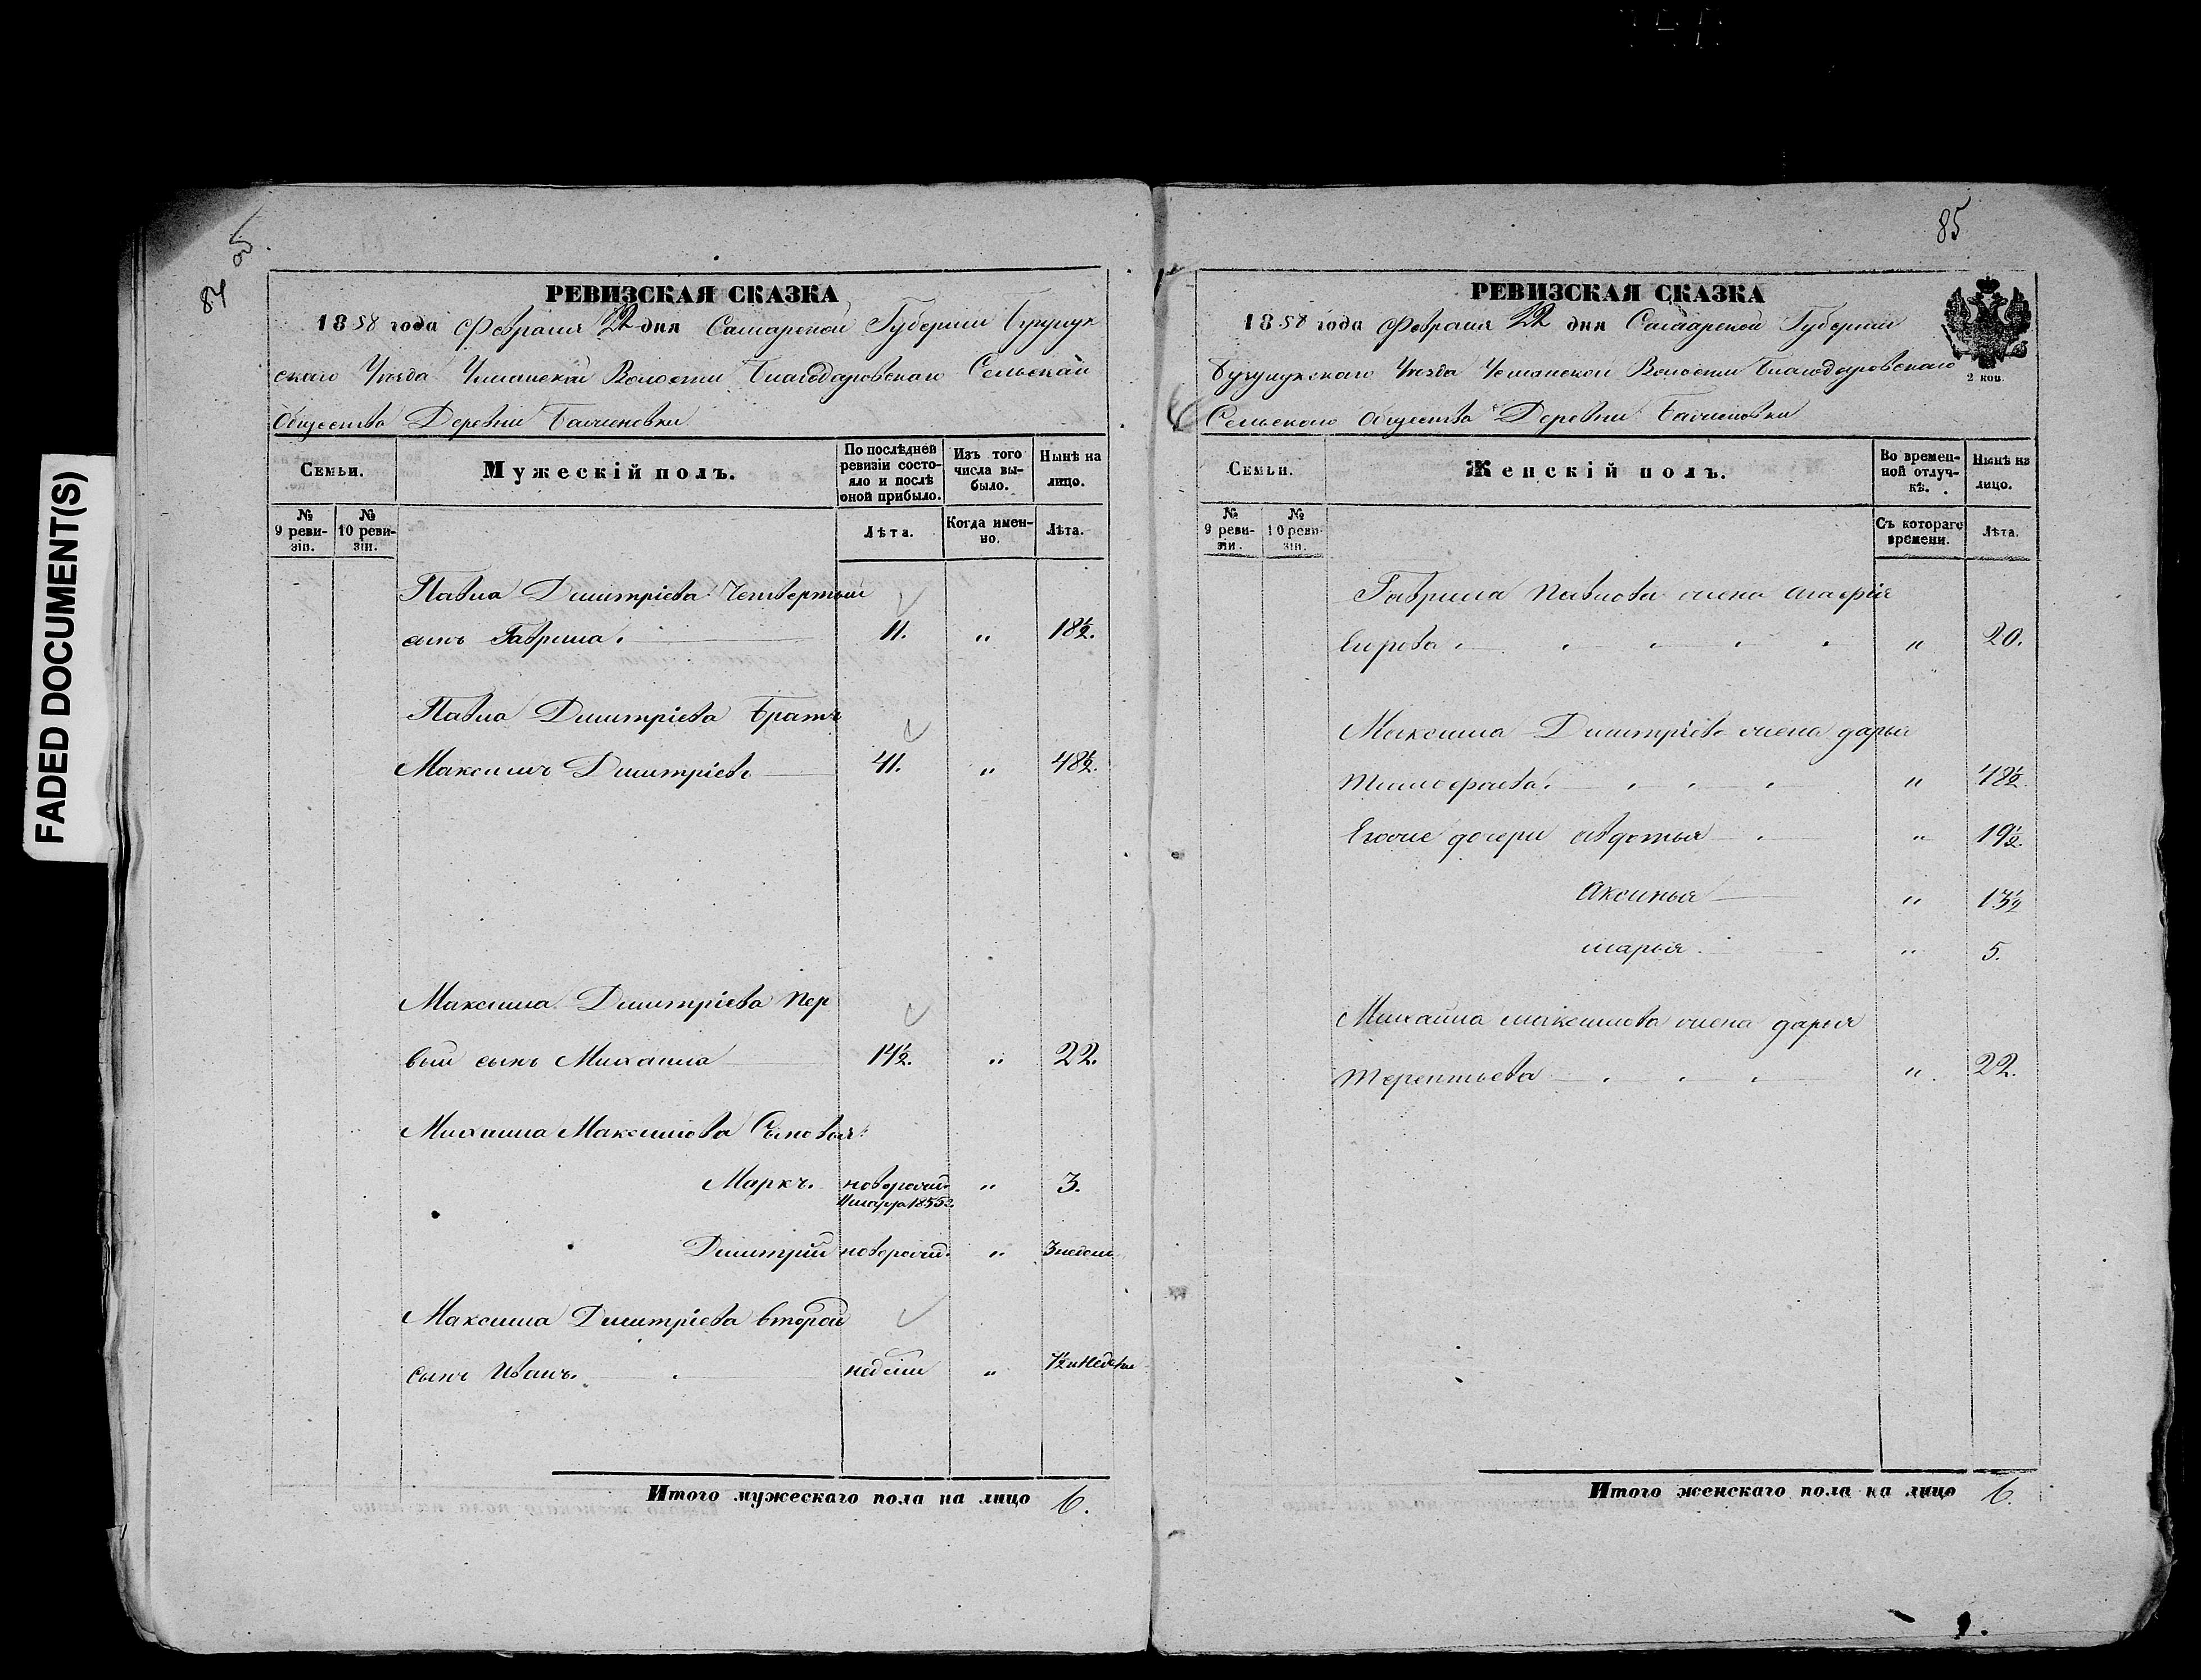 FADED DOCUMENT(S)
84
85
РЕВИЗСКАЯ СКАЗКА
1858 года Февраля 22 дня Самарской Губернии Бугурук
скаго Уезда Волости Благодаровскаго Сельскаго
Общества Деревни
Семьи.
Мужескій полъ.
По послѣдней ревизіи состояло и послѣ оной прибыло.
Изъ того числа выбыло.
Нынѣ на лицо.
№ 9 ревизіи.
№ 10 ревизіи.
Лѣта.
Когда именно.
Лѣта.
Павла Димитріева Четвертый
сынъ Гаврила. 11. " 18½.
Павла Димитріева Братъ
Максимъ Димитріевъ 41. " 48½.
Максима Димитріева пер
вый сынъ Михаила 14½. " 22.
Михаила Максимова Сыновья:
Маркъ. новорожд. " 3.
1855
Димитрій новорожд. " 3 недели
Максима Димитріева второй
сынъ Иванъ. недели "
Итого мужескаго пола на лицо 6.
85
РЕВИЗСКАЯ СКАЗКА
1858 года Февраля 22 дня Самарской Губернии
Уезда Волости Благодаровскаго
2 коп.
Сельскаго Общества Деревни
Семьи.
Женскій полъ.
Во временной отлучкѣ.
Нынѣ на лицо.
№ 9 ревизіи.
№ 10 ревизіи.
Съ котораго времени.
Лѣта.
Гаврила Павлова жена Агафія
" 20.
Максима Димитріева жена дарья
Тимофеева. " 48½.
Егоже дочери авдотья " 19½.
Аксинья " 13½
марья " 5.
Михайла максимова жена дарья
терентьева " 22.
Итого женскаго пола на лицо 6.